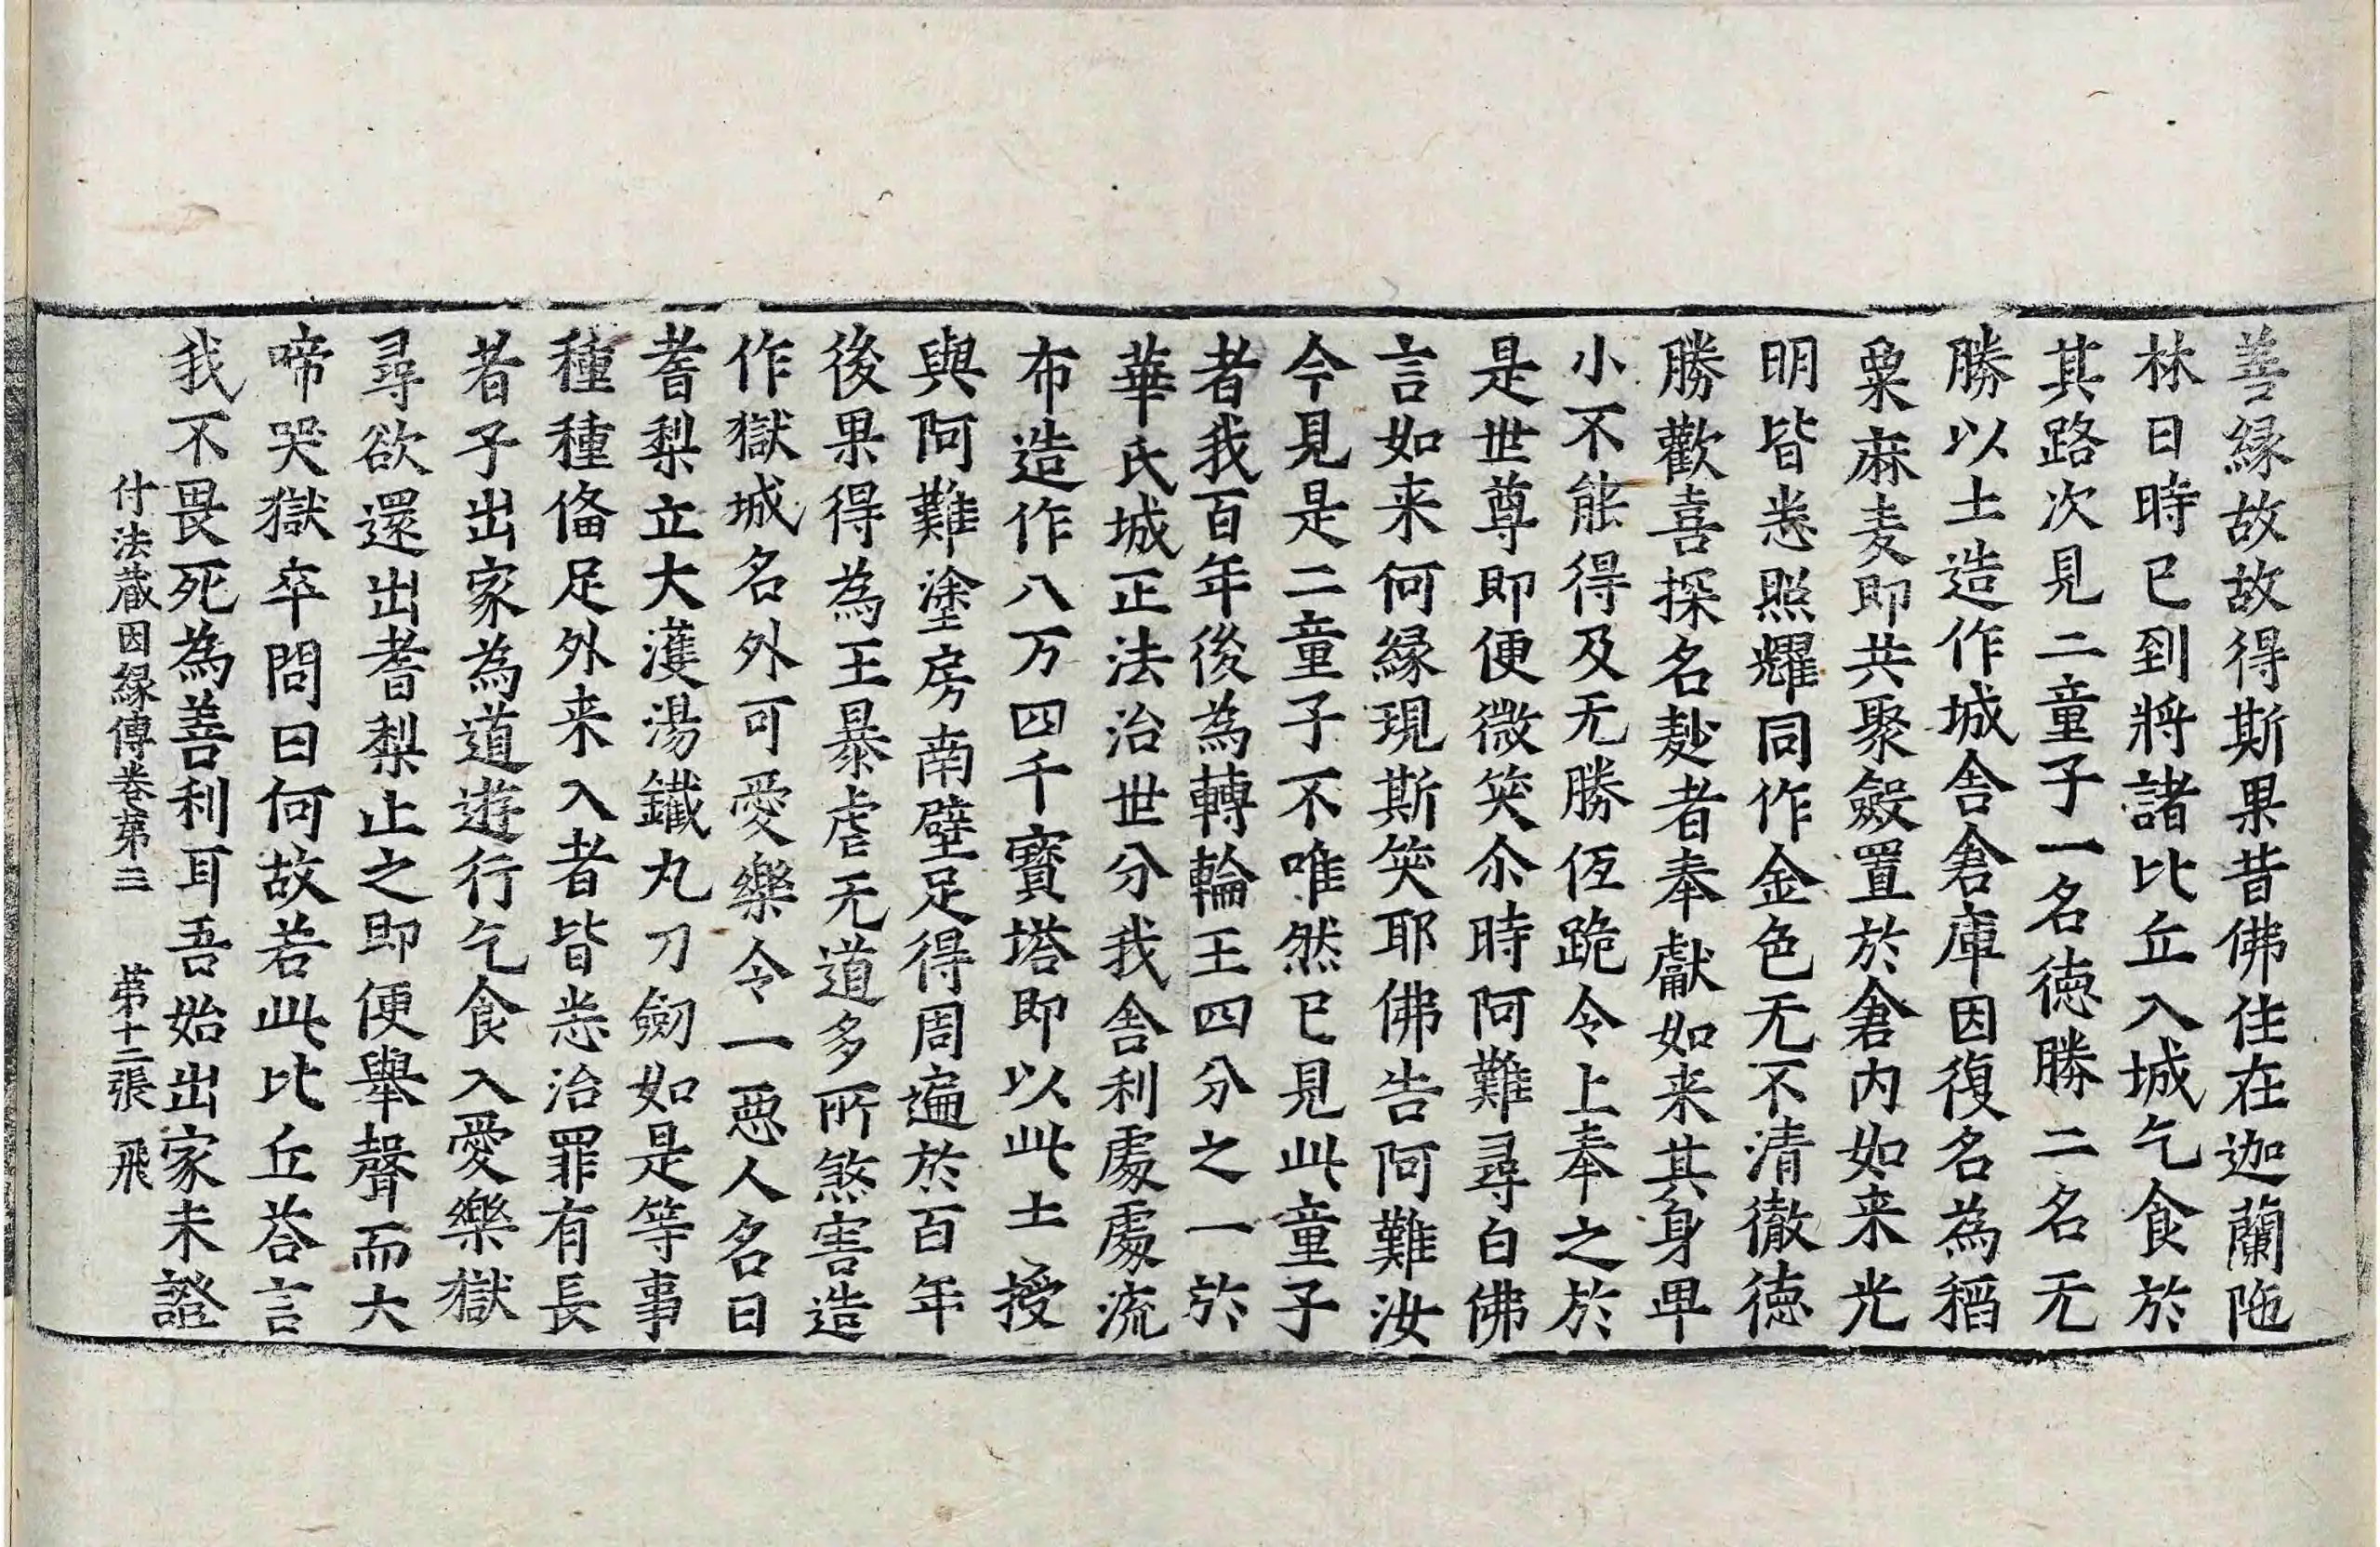 善緣故故得斯果昔佛住在迦蘭陁
林日時已到將諸比丘入城乞食於
其路次見二童子一名徳勝二名无
勝以土造作城舎倉庫因復名為稻
粟麻麦即共聚斂置於倉内如来光
明皆悉照耀同作金色无不清徹徳
勝歡喜探名麨者奉獻如来其身卑
小不能得及无勝仾跪令上奉之於
是世尊即便微笑尒時阿難尋白佛
言如来何緣現斯笑耶佛告阿難汝
今見是二童子不唯然已見此童子
者我百年後為轉輪王四分之一於
華氏城正法治世分我舎利處處流
布造作八万四千寳塔即以此土授
與阿難塗房南壁足得周遍於百年
後果得為王暴虐无道多所煞害造
作獄城名外可愛樂令一惡人名曰
耆梨立大濩湯鐵丸刀劒如是等事
種種俻足外来入者皆悉治罪有長
者子出家為道遊行乞食入愛樂獄
尋欲還出耆梨止之即便舉聲而大
啼哭獄卒問曰何故若此比丘荅言
我不畏死為善利耳吾始出家未證
付法蔵因緣傳卷苐三 苐十二張 飛